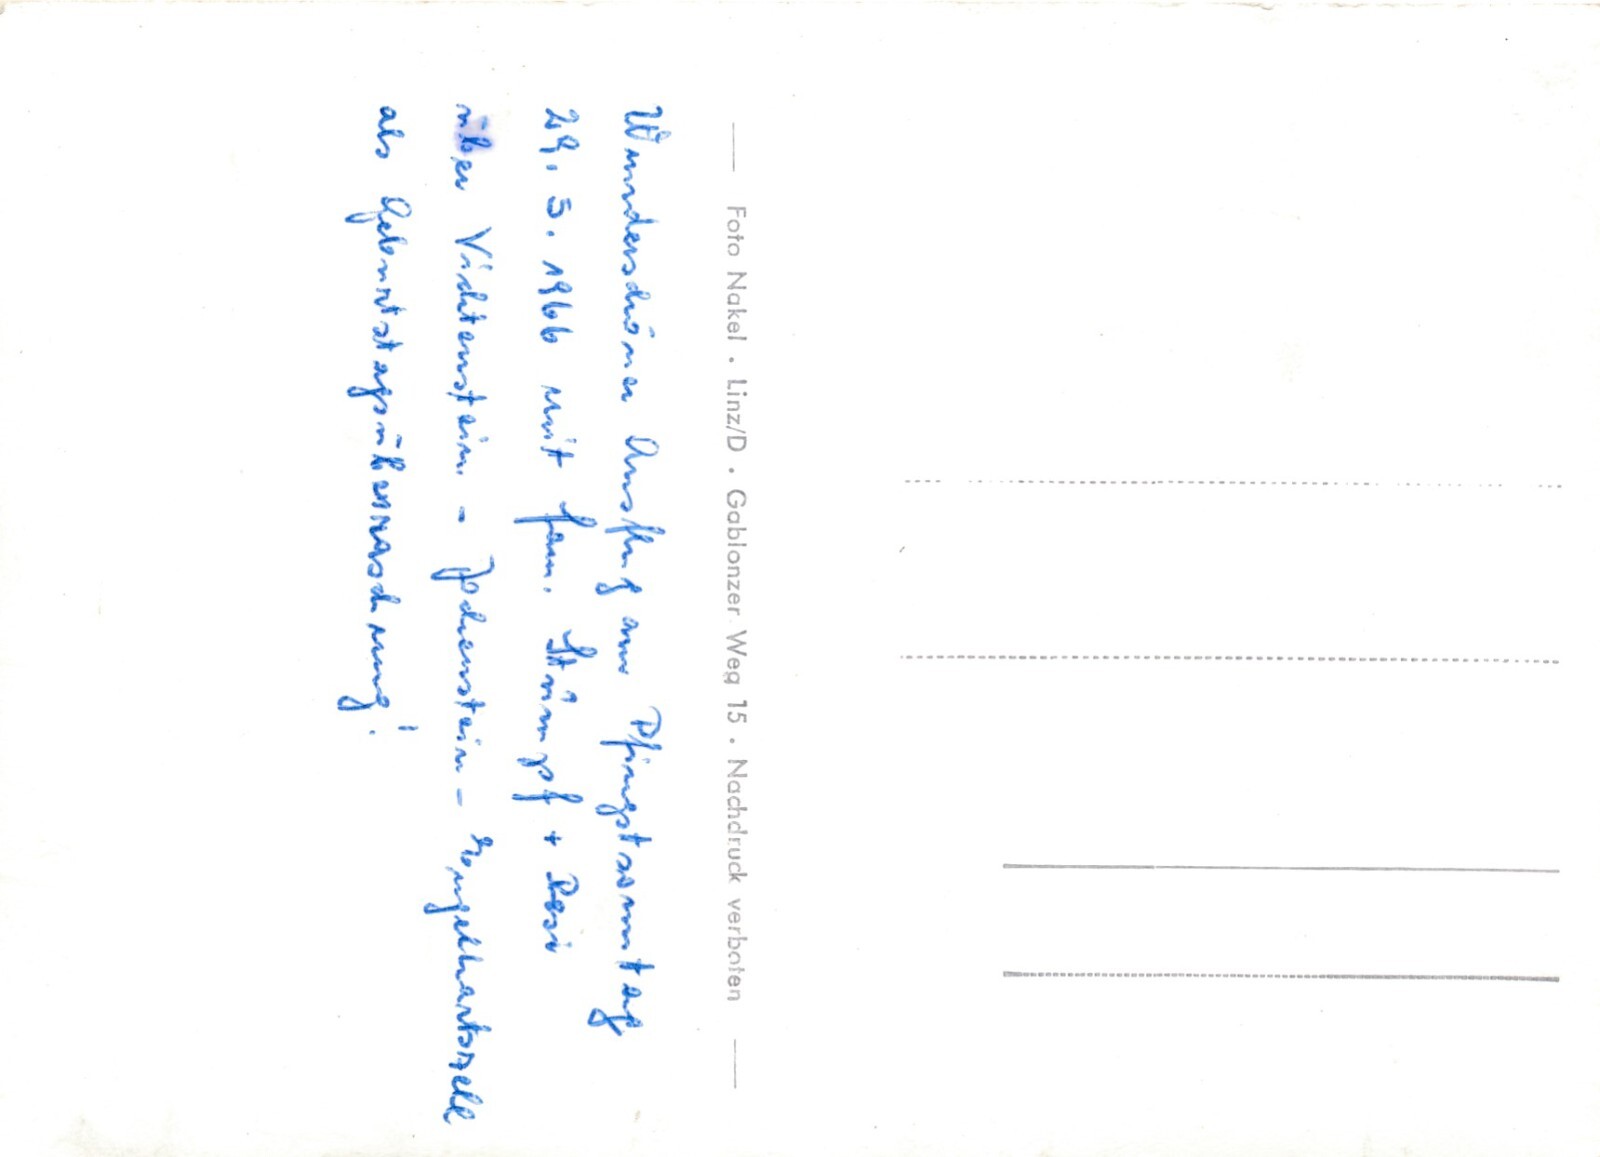 Wunderschöner Ausflug am Pfingstsonntag
29. 5. 1966 mit Fam. Stümpf + Resi
über Vichtenstein - Jochenstein - Engelhartszell
als Geburtstagsüberraschung!
Foto Nakel • Linz/D • Gablonzer Weg 15 • Nachdruck verboten